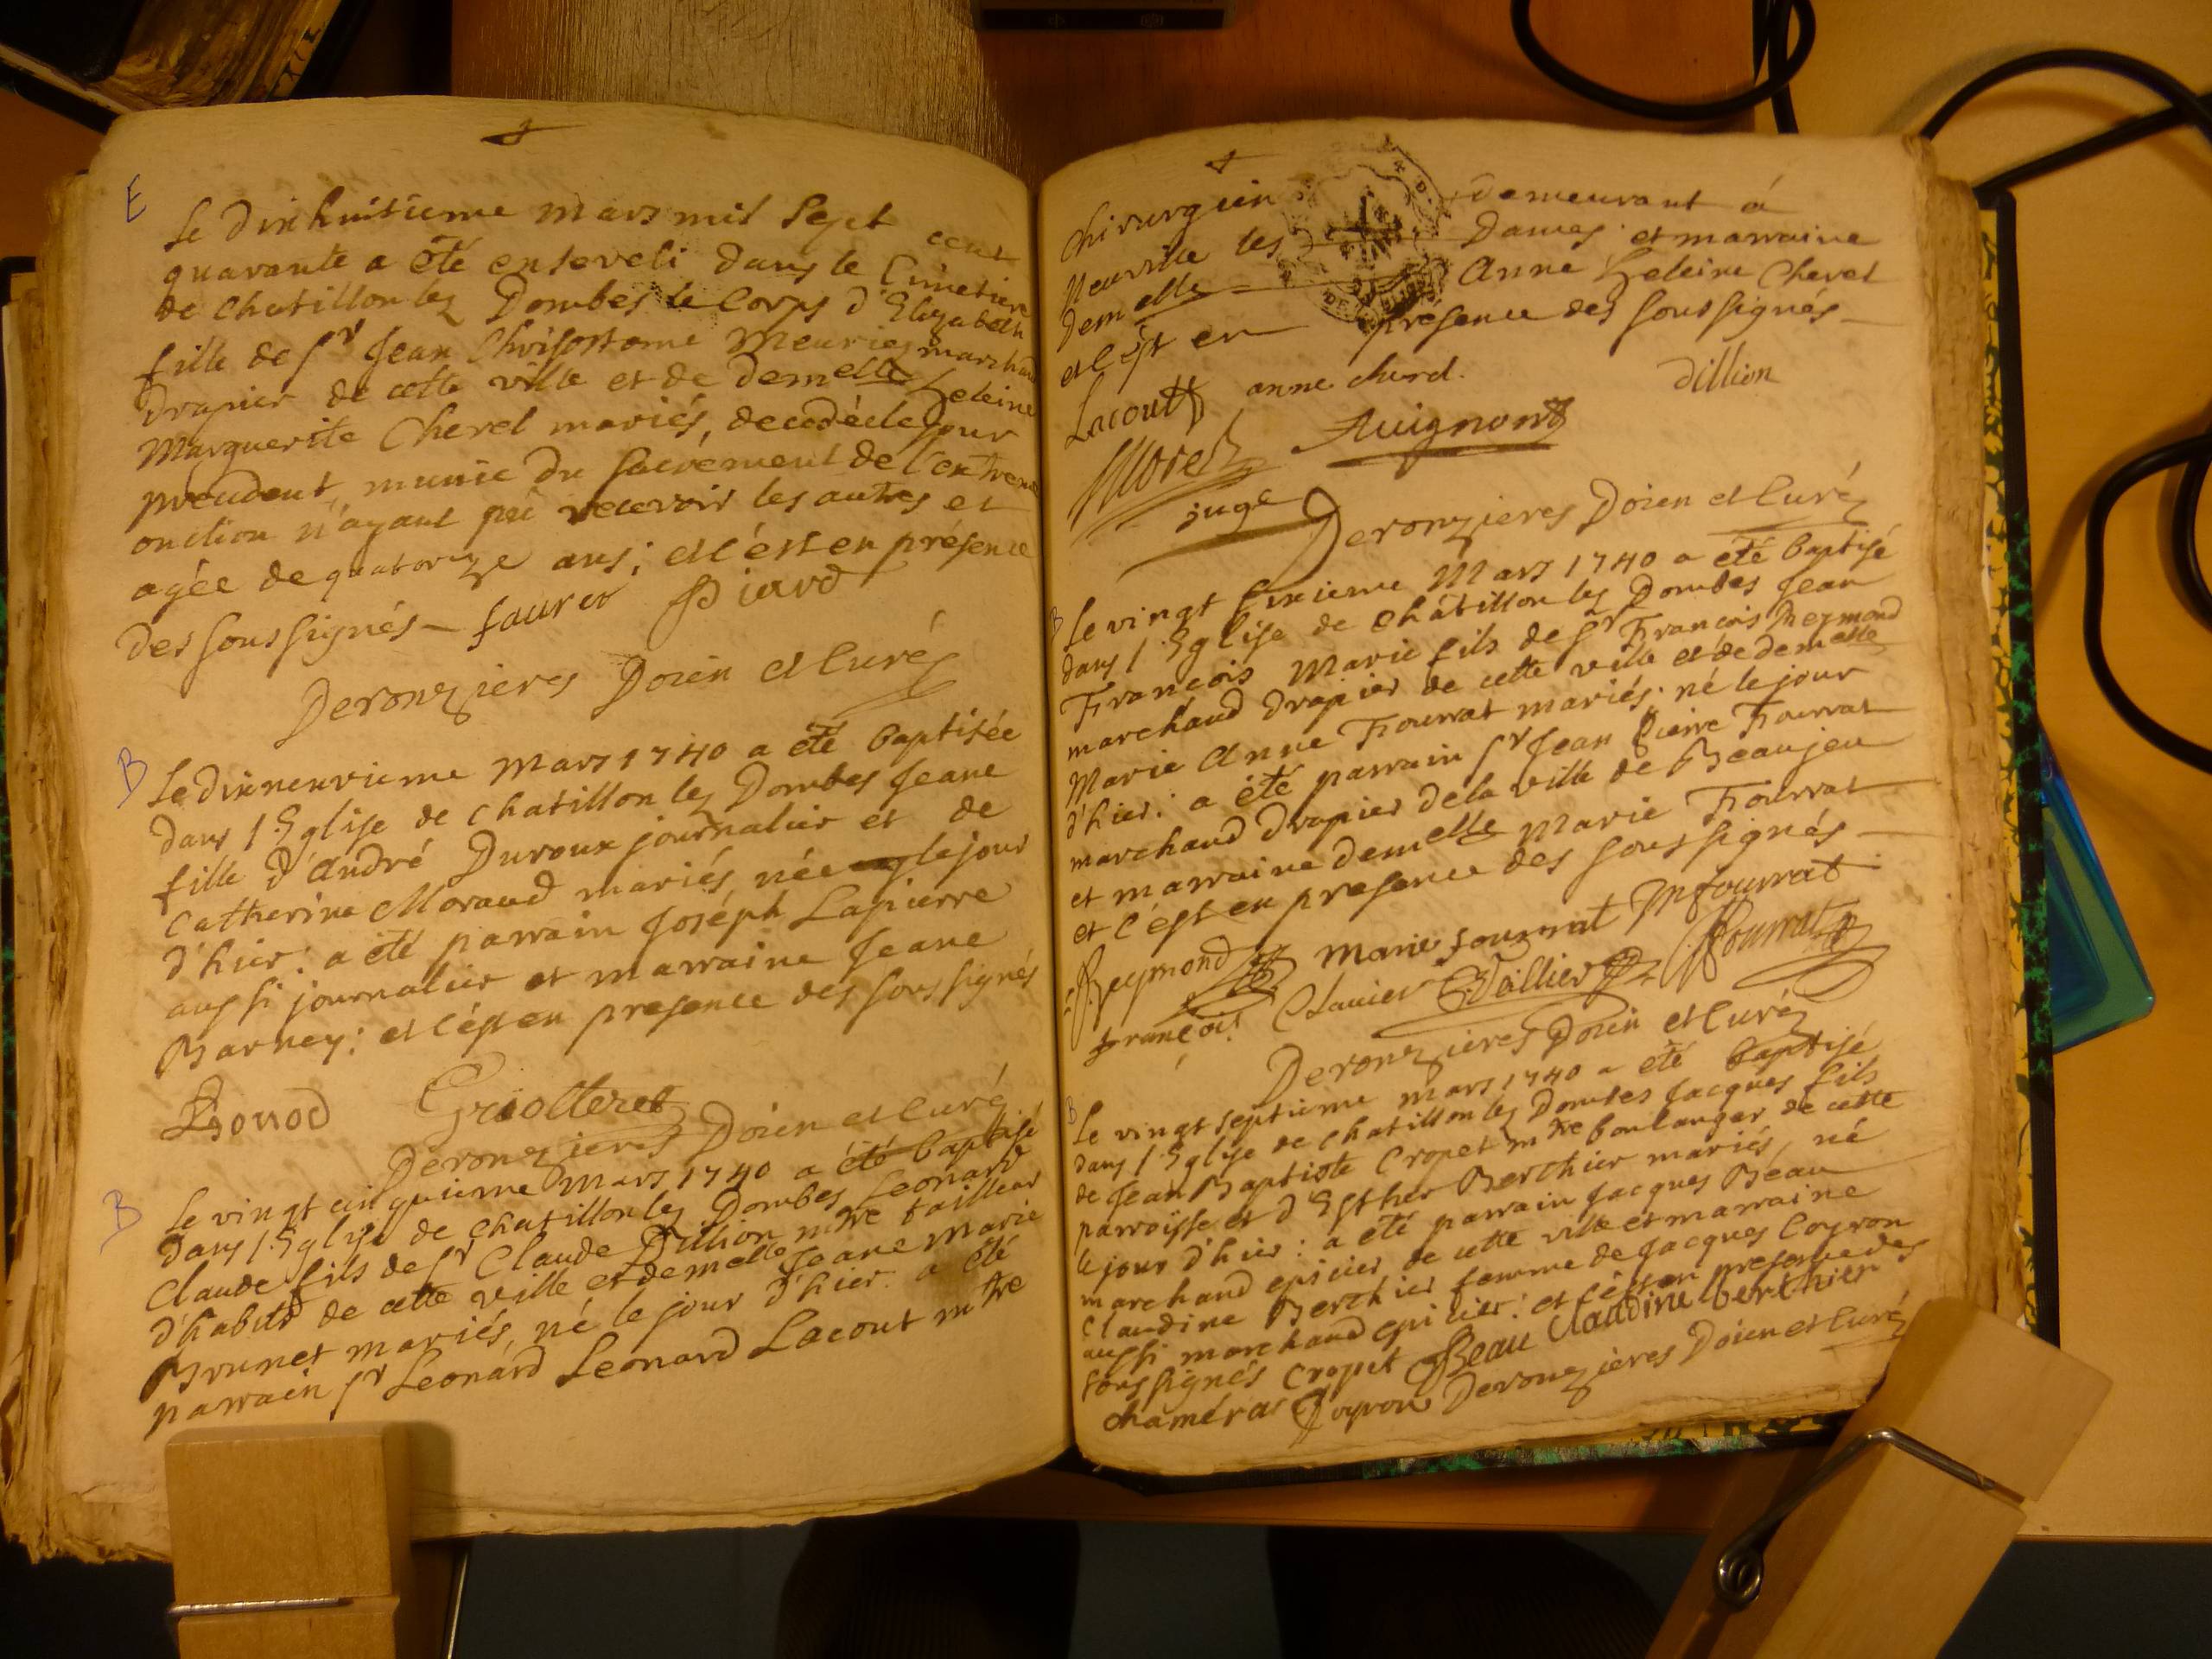 E
Le dixhuitieme mars mil sept cent
quarante a été enseveli dans le Cimetiere
de Chatillon les Dombes le Corps d'Elizabeth
fille de Sr Jean Chrisostome Meurier marchand
Drapier de cette ville et de demelle Heleine
Marguerite Cherel mariés, decedée le jour
precedent, munie du sacrement de l'extreme
onction n'ayant pû recevoir les autres et
agée de quatorze ans; et c'est en présence
des soussignés - faurer Piard
Deronzieres Doien et Curé
B
Le dixneuvieme mars 1740 a été baptisée
dans l'Eglise de Chatillon les Dombes Jeane
fille d'André Duroux journalier et de
Catherine Moraud mariés, née le jour
d'hier: a été parrain Joséph Lapierre
aussi journalier et marraine Jeane
Barney: et c'est en presence des soussignés
Bonod Griotteret
Deronzieres Doien et Curé
B
Le vingt cinquieme mars 1740 a été baptisé
dans l'Eglise de Chatillon les Dombes Leonard
Claude fils de Sr Claude Dillion mtre tailleur
d'habits de cette ville et demelle Jeane Marie
Brunet mariés, né le jour d'hier a été
parrain Sr Leonard Leonard Lacout mtre
chirurgien demeurant á
Neuville les Dames et marraine
demelle Anne Heleine Cherel
et c'est en présence des soussignés
Lacout anne cherel. dillion
Morel Avignont
juge
Deronzieres Doien et Curé
B
Le vingt sixieme Mars 1740 a été baptisé
dans l'Eglise de Châtillon les Dombes Jean
François Marie fils de Sr François Reymond
marchand drapier de cette ville et de demelle
Marie Anne Fourrat mariés, né le jour
d'hier: a été parrain Sr Jean Pierre Fourrat
marchand drapier de la ville de Beaujeu
et marraine demelle Marie Fourrat
et c'est en presence des soussignés
Reymond marie fourrat M fourrat
françois Clavier Vallier Fourrat
Deronzieres Doien et Curé
B
Le vingt septieme mars 1740 a été baptisé
dans l'Eglise de Chatillon les Dombes Jacques fils
de Jean Baptiste Cropet mtre boulanger de cette
parroisse et d'Esther Berthier mariés, né
le jour d'hier: a été parrain Jacques Béau
marchand epicier de cette ville et marraine
Claudine Berthier femme de Jacques Coyron
aussi marchand epicier: et c'est en presence des
soussignés Cropet Beau Claudine berthier
chaméras Coyron Deronzieres Doien et Curé